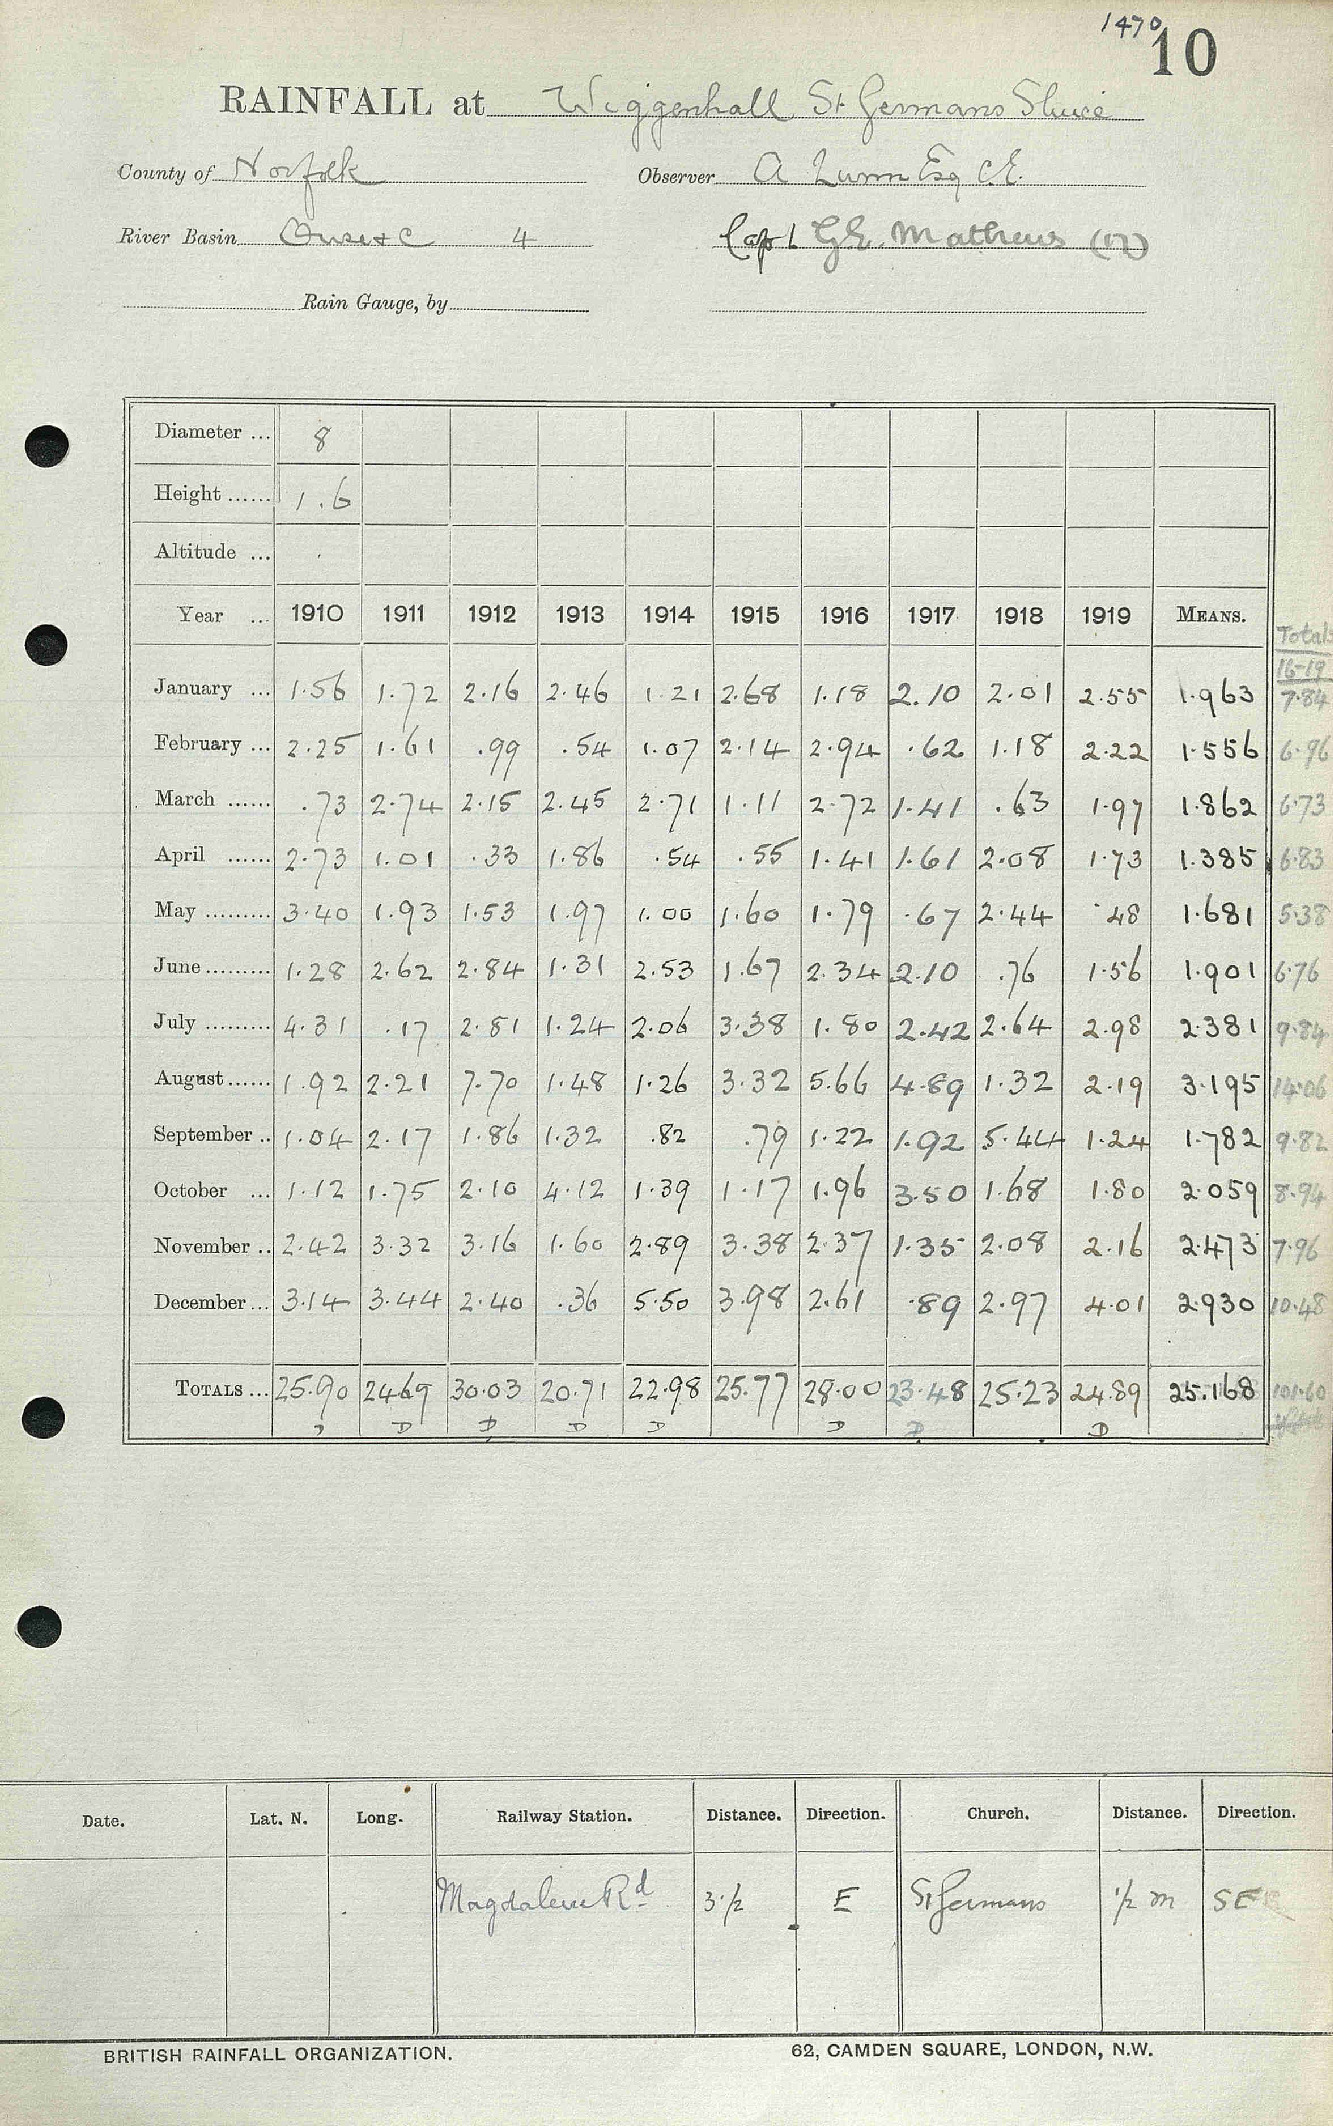 1470
10
RAINFALL at Wiggenhall St Germans Sluice
County of Norfolk Observer A Lunn Esq C.E.
River Basin Ouse &c 4 Capt G.E. Mathews (17)
Rain Gauge, by
Diameter ... 8
Height ...... 1.6
Altitude ... .
Year ... 1910 1911 1912 1913 1914 1915 1916 1917 1918 1919 MEANS. Totals
16-19
January ... 1.56 1.72 2.16 2.46 1.21 2.68 1.18 2.10 2.01 2.55 1.963 7.84
February ... 2.25 1.61 .99 .54 1.07 2.14 2.94 .62 1.18 2.22 1.556 6.96
March ...... .73 2.74 2.15 2.45 2.71 1.11 2.72 1.41 .63 1.97 1.862 6.73
April ...... 2.73 1.01 .33 1.86 .54 .55 1.41 1.61 2.08 1.73 1.385 6.83
May ......... 3.40 1.93 1.53 1.97 1.00 1.60 1.79 .67 2.44 .48 1.681 5.38
June ......... 1.28 2.62 2.84 1.31 2.53 1.67 2.34 2.10 .76 1.56 1.901 6.76
July ......... 4.31 .17 2.81 1.24 2.06 3.38 1.80 2.42 2.64 2.98 2.381 9.84
August ...... 1.92 2.21 7.70 1.48 1.26 3.32 5.66 4.89 1.32 2.19 3.195 14.06
September .. 1.04 2.17 1.86 1.32 .82 .79 1.22 1.92 5.44 1.24 1.782 9.82
October ... 1.12 1.75 2.10 4.12 1.39 1.17 1.96 3.50 1.68 1.80 2.059 8.94
November .. 2.42 3.32 3.16 1.60 2.89 3.38 2.37 1.35 2.08 2.16 2.473 7.96
December ... 3.14 3.44 2.40 .36 5.50 3.98 2.61 .89 2.97 4.01 2.930 10.48
TOTALS ... 25.90 24.69 30.03 20.71 22.98 25.77 28.00 23.48 25.23 24.89 25.168 101.60
D D D D D D D D
Date. Lat. N. Long. Railway Station. Distance. Direction. Church. Distance. Direction.
Magdalen Rd 3½ E St Germans ½ m SE
BRITISH RAINFALL ORGANIZATION. 62, CAMDEN SQUARE, LONDON, N.W.